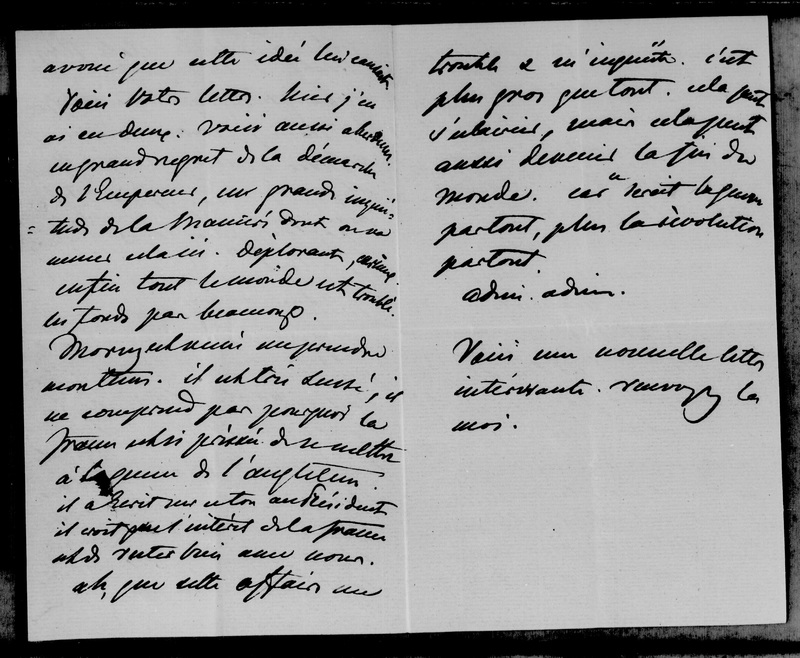 avoué que cette idée lui
Voici votre lettre. hier j'en
ai eu deux. Voici aussi aberdeen.
un grand regret de la démarche
de l'Empereur, une grande inquié-
= tude de la manière dont on va
mener cela ici. Déplorant,
enfin tout le monde est troublé.
les fonds pas beaucoup.
Morny est venu me prendre
mon tems. il est très sensé, il
ne comprend pas pourquoi la
france est si pressée de se mettre
à la queue de l'angleterre.
il a écrit sur ce ton au Président
il croit que l'intérêt de la france
est de rester bien avec nous.
ah, que cette affaire me
trouble & m'inquiète. c'est
plus gros que tout. cela peut
s'éclaircir, mais cela peut
aussi devenir la fin du
monde. car serait la guerre
partout, plus la révolution
partout.
adieu. adieu.
Voici une nouvelle lettre
intéressante. renvoyez la
moi.